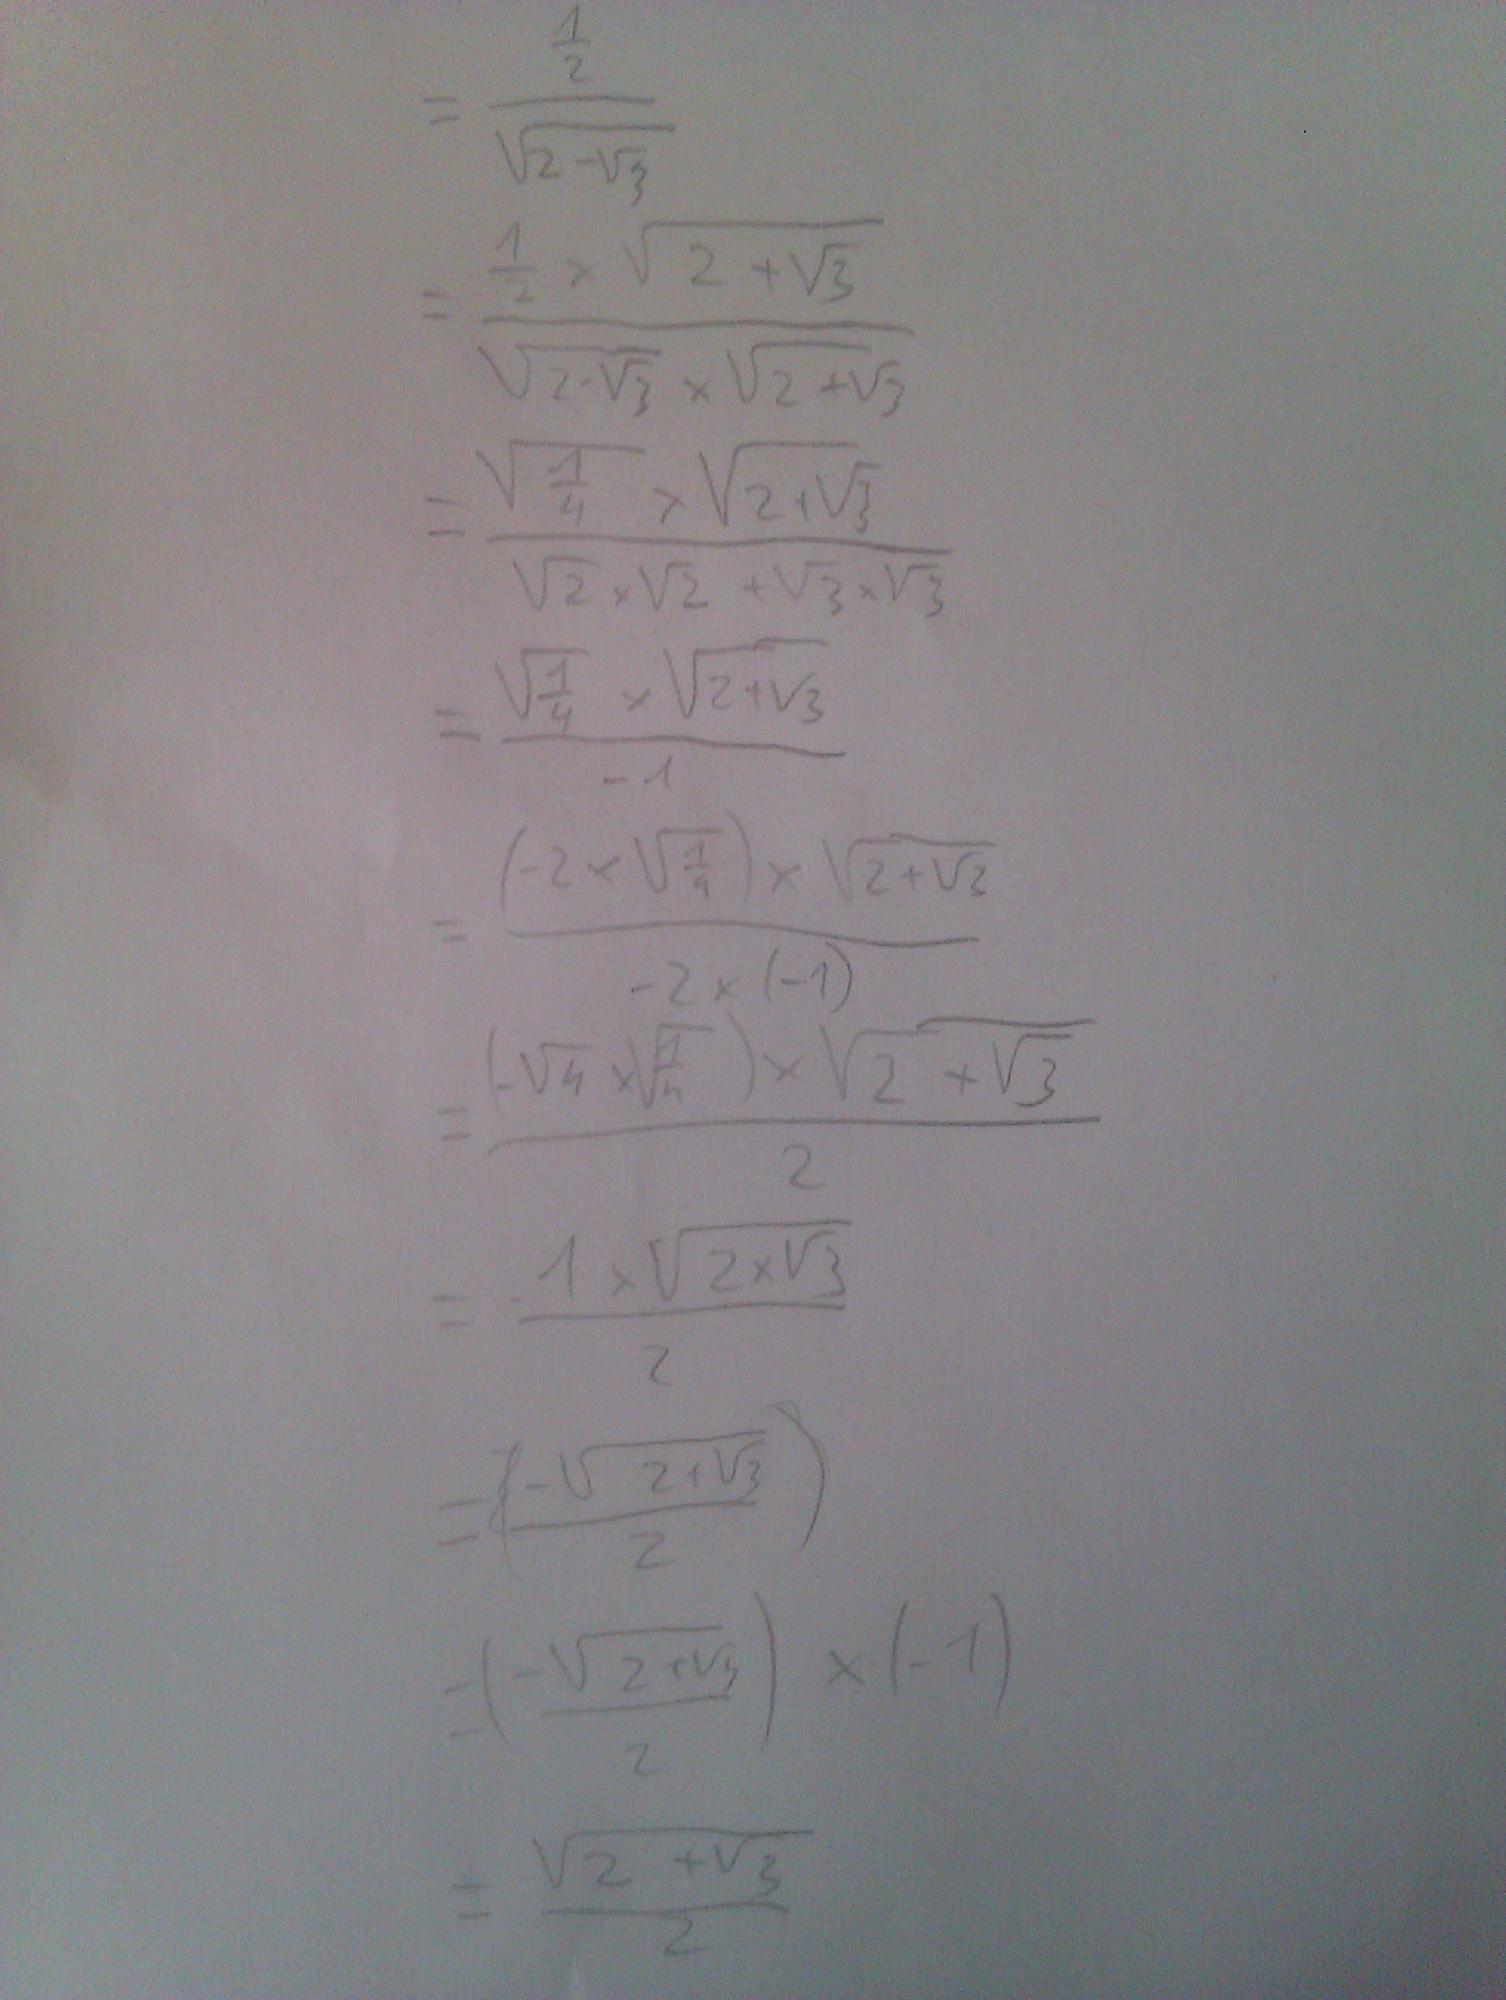 = (1/2) / √(2-√3)
= (1/2 × √(2+√3)) / (√(2-√3) × √(2+√3))
= (√(1/4) × √(2+√3)) / (√2 × √2 + √3 × √3)
= (√(1/4) × √(2+√3)) / -1
= ((-2 × √(1/4)) × √(2+√3)) / (-2 × (-1))
= ((-√4 × √(1/4)) × √(2+√3)) / 2
= (-1 × √(2×√3)) / 2
= (-√(2+√3) / 2)
= (-√(2+√3) / 2) × (-1)
= √(2+√3) / 2